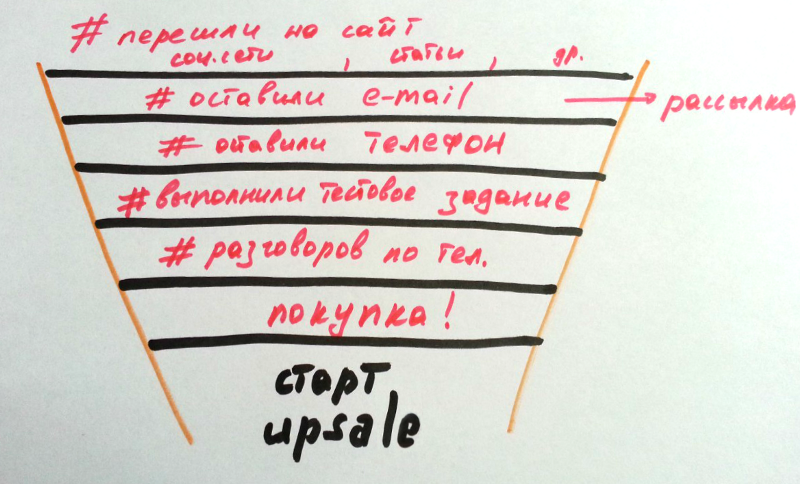 # перешли на сайт
соц.сети , статьи , др.
# оставили e-mail → рассылка
# отавили ТЕЛЕФОН
# выполнили тестовое задание
# разговоров по тел.
покупка!
старт
upsale